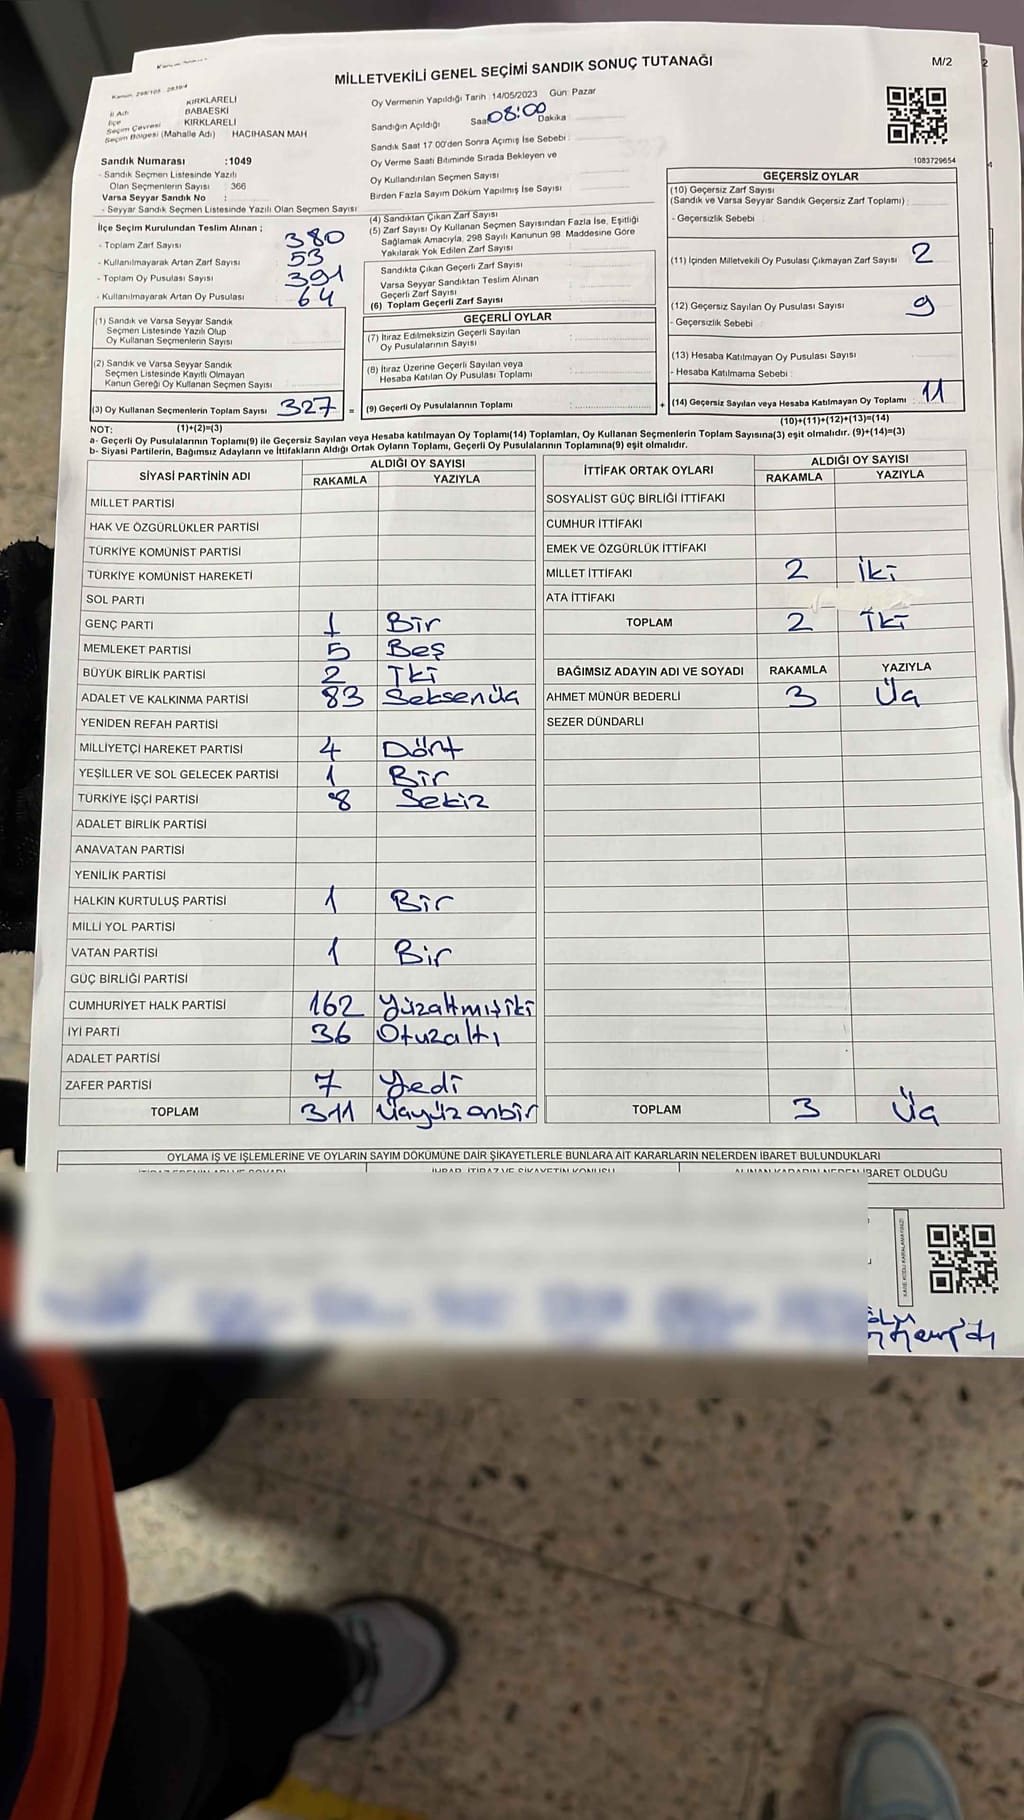 MİLLETVEKİLİ GENEL SEÇİMİ SANDIK SONUÇ TUTANAĞI
M/2
İl Adı KIRKLARELİ
İlçe BABAESKİ
Seçim Çevresi KIRKLARELİ
Seçim Bölgesi (Mahalle Adı) HACIHASAN MAH
Sandık Numarası :1049
- Sandık Seçmen Listesinde Yazılı
Olan Seçmenlerin Sayısı : 366
Varsa Seyyar Sandık No :
- Seyyar Sandık Seçmen Listesinde Yazılı Olan Seçmen Sayısı
Oy Vermenin Yapıldığı Tarih :14/05/2023 Gün: Pazar
Sandığın Açıldığı Saat 08:00 Dakika :
Sandık Saat 17:00'den Sonra Açımış İse Sebebi :
Oy Verme Saati Bitiminde Sırada Bekleyen ve
Oy Kullandırılan Seçmen Sayısı
Birden Fazla Sayım Döküm Yapılmış İse Sayısı
1083729654
İlçe Seçim Kurulundan Teslim Alınan ;
- Toplam Zarf Sayısı : 380
- Kullanılmayarak Artan Zarf Sayısı : 53
- Toplam Oy Pusulası Sayısı : 391
- Kullanılmayarak Artan Oy Pusulası : 64
(1) Sandık ve Varsa Seyyar Sandık
Seçmen Listesinde Yazılı Olup
Oy Kullanan Seçmenlerin Sayısı
(2) Sandık ve Varsa Seyyar Sandık
Seçmen Listesinde Kayıtlı Olmayan
Kanun Gereği Oy Kullanan Seçmen Sayısı
(3) Oy Kullanan Seçmenlerin Toplam Sayısı 327 =
(1)+(2)=(3)
(4) Sandıktan Çıkan Zarf Sayısı
(5) Zarf Sayısı Oy Kullanan Seçmen Sayısından Fazla İse, Eşitliği
Sağlamak Amacıyla, 298 Sayılı Kanunun 98. Maddesine Göre
Yakılarak Yok Edilen Zarf Sayısı
Sandıkta Çıkan Geçerli Zarf Sayısı
Varsa Seyyar Sandıktan Teslim Alınan
Geçerli Zarf Sayısı
(6) Toplam Geçerli Zarf Sayısı
GEÇERLİ OYLAR
(7) İtiraz Edilmeksizin Geçerli Sayılan
Oy Pusulalarının Sayısı
(8) İtiraz Üzerine Geçerli Sayılan veya
Hesaba Katılan Oy Pusulası Toplamı
(9) Geçerli Oy Pusulalarının Toplamı +
GEÇERSİZ OYLAR
(10) Geçersiz Zarf Sayısı
(Sandık ve Varsa Seyyar Sandık Geçersiz Zarf Toplamı) :
- Geçersizlik Sebebi :
(11) İçinden Milletvekili Oy Pusulası Çıkmayan Zarf Sayısı : 2
(12) Geçersiz Sayılan Oy Pusulası Sayısı : 9
- Geçersizlik Sebebi :
(13) Hesaba Katılmayan Oy Pusulası Sayısı :
- Hesaba Katılmama Sebebi :
(14) Geçersiz Sayılan veya Hesaba Katılmayan Oy Toplamı : 11
(10)+(11)+(12)+(13)=(14)
NOT:
a- Geçerli Oy Pusulalarının Toplamı(9) ile Geçersiz Sayılan veya Hesaba katılmayan Oy Toplamı(14) Toplamları, Oy Kullanan Seçmenlerin Toplam Sayısına(3) eşit olmalıdır. (9)+(14)=(3)
b- Siyasi Partilerin, Bağımsız Adayların ve İttifakların Aldığı Ortak Oyların Toplamı, Geçerli Oy Pusulalarının Toplamına(9) eşit olmalıdır.
SİYASİ PARTİNİN ADI ALDIĞI OY SAYISI
RAKAMLA YAZIYLA
MİLLET PARTİSİ
HAK VE ÖZGÜRLÜKLER PARTİSİ
TÜRKİYE KOMÜNİST PARTİSİ
TÜRKİYE KOMÜNİST HAREKETİ
SOL PARTİ
GENÇ PARTİ 1 Bir
MEMLEKET PARTİSİ 5 Beş
BÜYÜK BİRLİK PARTİSİ 2 İki
ADALET VE KALKINMA PARTİSİ 83 Seksenüç
YENİDEN REFAH PARTİSİ
MİLLİYETÇİ HAREKET PARTİSİ 4 Dört
YEŞİLLER VE SOL GELECEK PARTİSİ 1 Bir
TÜRKİYE İŞÇİ PARTİSİ 8 Sekiz
ADALET BİRLİK PARTİSİ
ANAVATAN PARTİSİ
YENİLİK PARTİSİ
HALKIN KURTULUŞ PARTİSİ 1 Bir
MİLLİ YOL PARTİSİ
VATAN PARTİSİ 1 Bir
GÜÇ BİRLİĞİ PARTİSİ
CUMHURİYET HALK PARTİSİ 162 Yüzaltmışiki
İYİ PARTİ 36 Otuzaltı
ADALET PARTİSİ
ZAFER PARTİSİ 7 Yedi
TOPLAM 311 Üçyüzonbir
İTTİFAK ORTAK OYLARI ALDIĞI OY SAYISI
RAKAMLA YAZIYLA
SOSYALİST GÜÇ BİRLİĞİ İTTİFAKI
CUMHUR İTTİFAKI
EMEK VE ÖZGÜRLÜK İTTİFAKI
MİLLET İTTİFAKI 2 İki
ATA İTTİFAKI
TOPLAM 2 İki
BAĞIMSIZ ADAYIN ADI VE SOYADI RAKAMLA YAZIYLA
AHMET MÜNÜR BEDERLİ 3 Üç
SEZER DÜNDARLI
TOPLAM 3 Üç
OYLAMA İŞ VE İŞLEMLERİNE VE OYLARIN SAYIM DÖKÜMÜNE DAİR ŞİKAYETLERLE BUNLARA AİT KARARLARIN NELERDEN İBARET BULUNDUKLARI
İTİRAZ EDENİN ADI VE SOYADI İHBAR, İTİRAZ VE ŞİKAYETİN KONUSU ALINAN KARARIN NEDEN İBARET OLDUĞU
KARE KODU KARALAMAYINIZ!